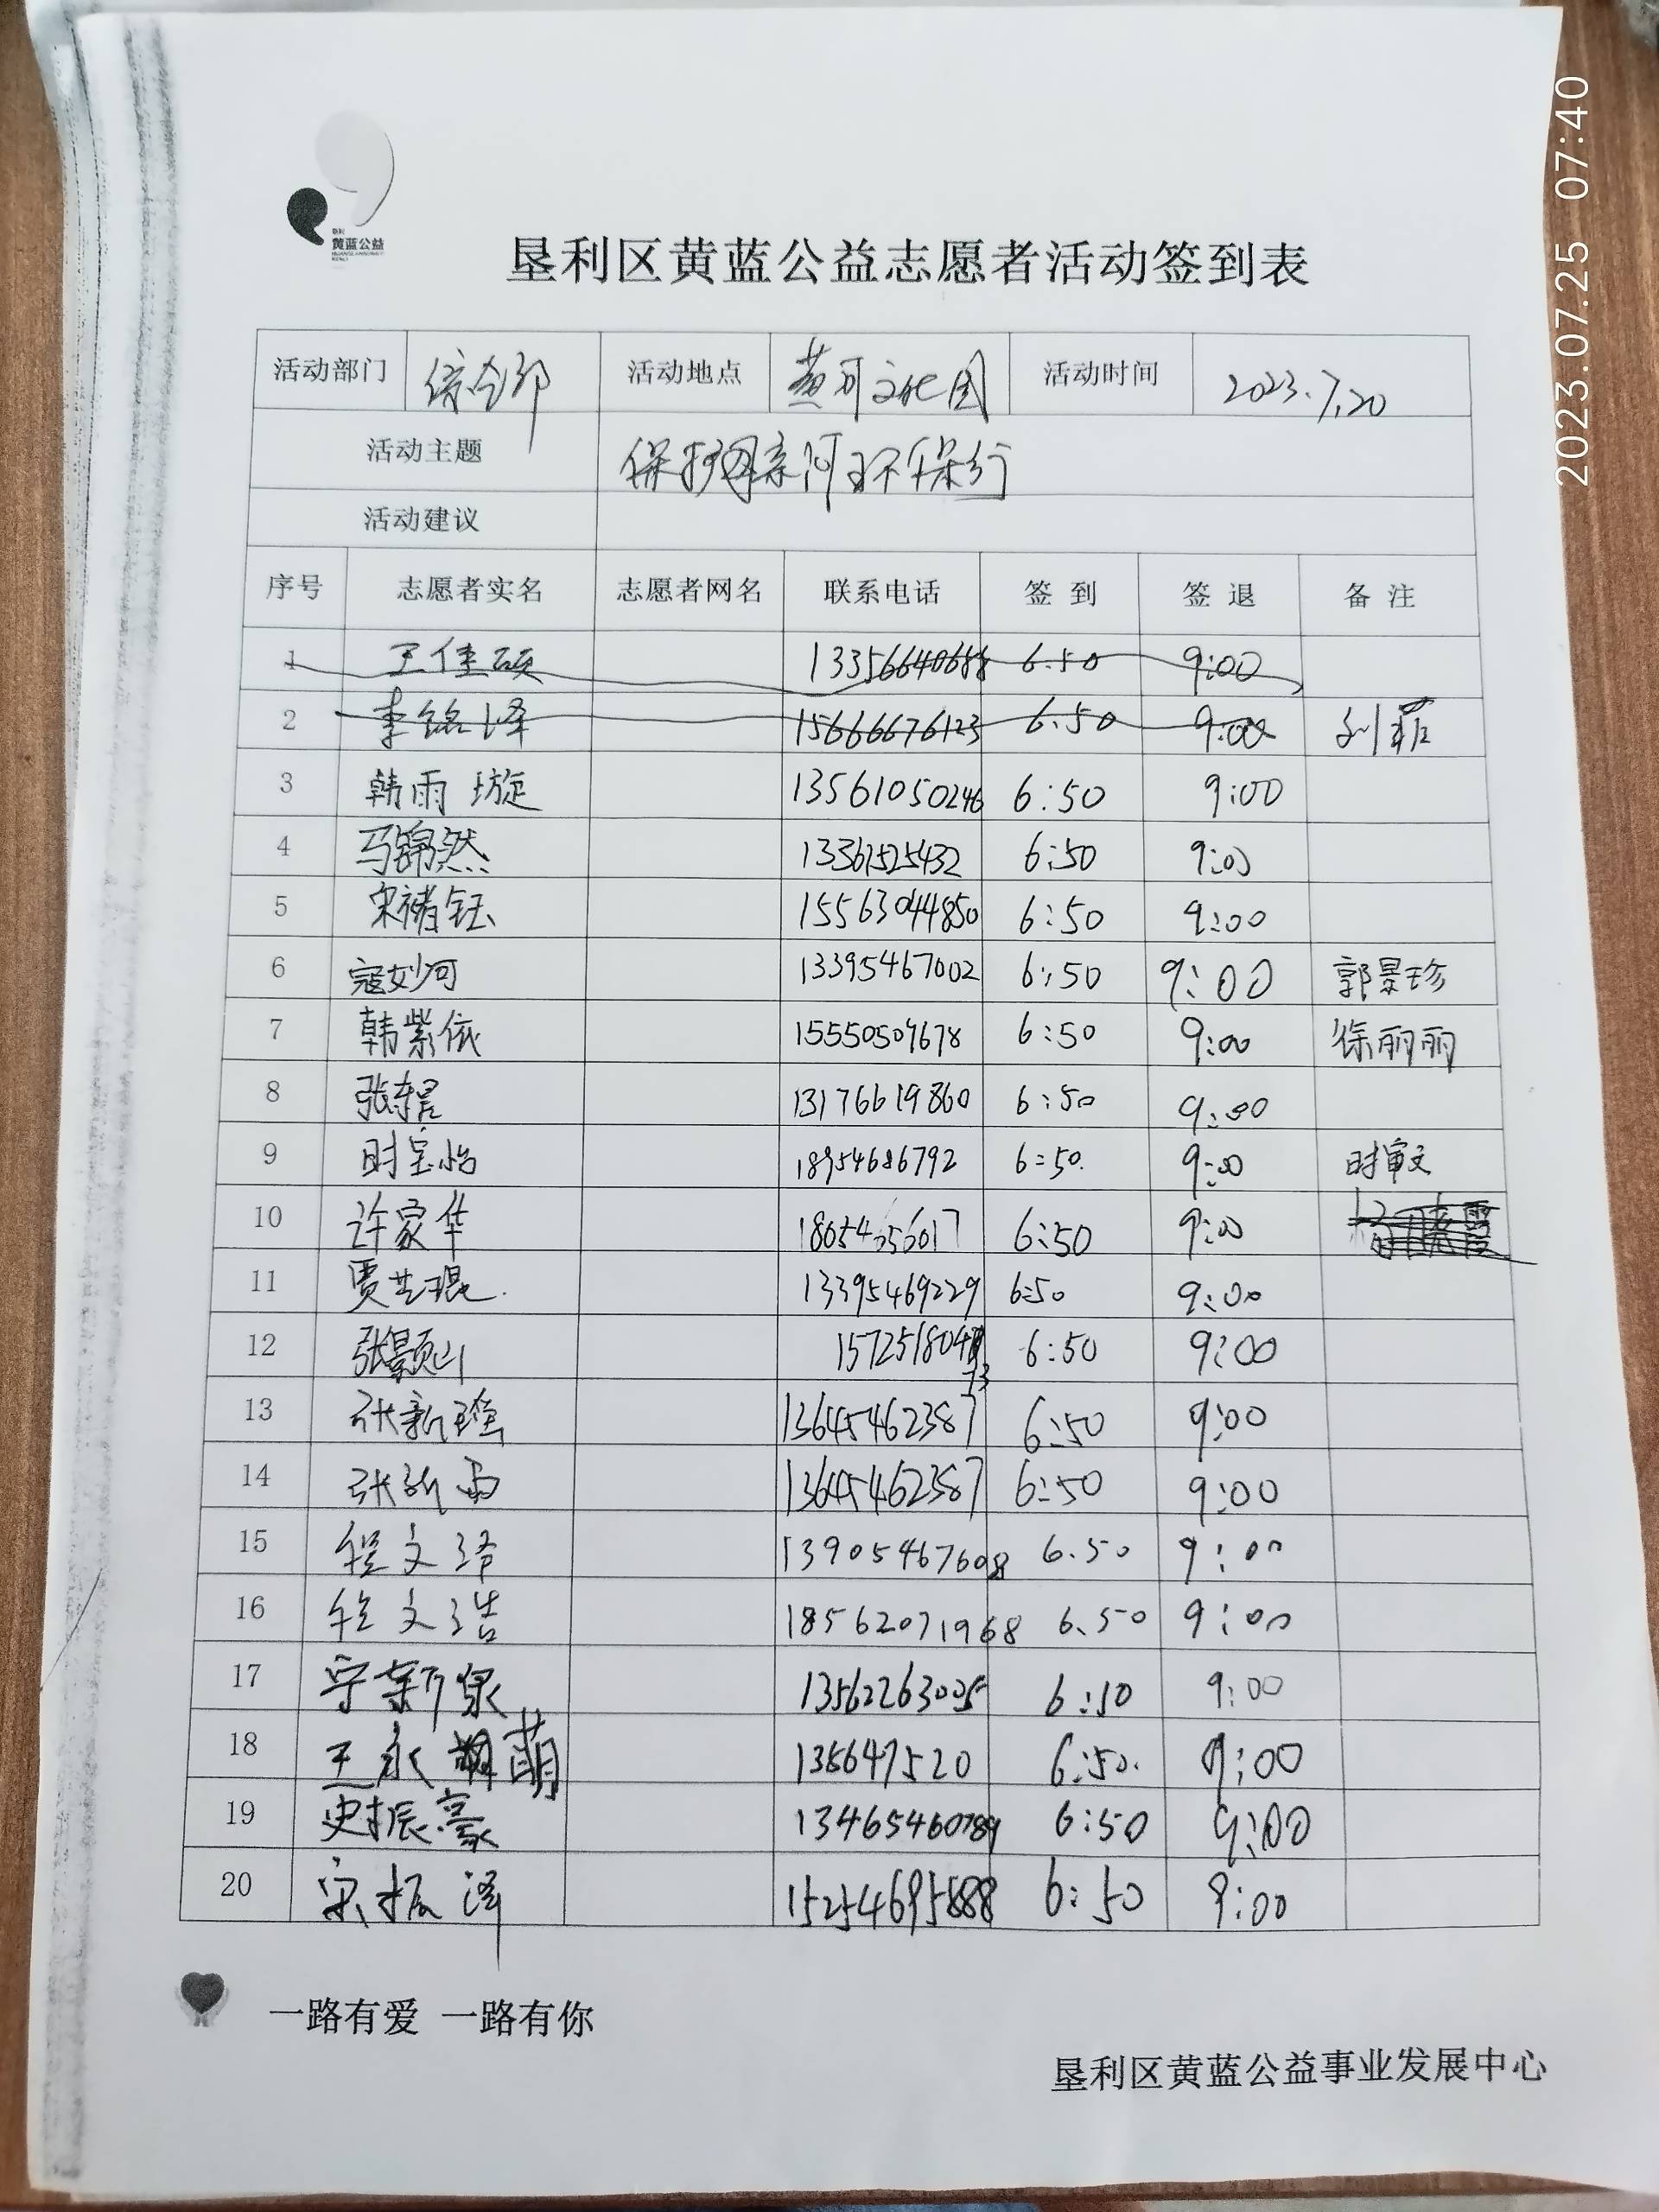 2023.07.25 07:40
黄蓝公益
垦利区黄蓝公益志愿者活动签到表
活动部门 综合部 活动地点 黄河文化园 活动时间 2023.7.20
活动主题 保护母亲河环保行
活动建议
序号 志愿者实名 志愿者网名 联系电话 签到 签退 备注
1 王佳硕 13356640688 6:50 9:00
2 李铭泽 15666676123 6:50 9:00 刘菲
3 韩雨璇 13561050246 6:50 9:00
4 马锦然 13361525432 6:50 9:00
5 宋禇钰 15563044850 6:50 9:00
6 寇妙可 13395467002 6:50 9:00 郭景珍
7 韩紫依 15550509678 6:50 9:00 徐丽丽
8 13176619860 6:50 9:00
9 时宝怡 18954686792 6:50 9:00 时审文
10 许家华 6:50 9:00
11 13395469229 6:50 9:00
12 张颢山 6:50 9:00
13 张新瑶 13645462387 6:50 9:00
14 张新雨 13645462387 6:50 9:00
15 程文泽 13905467608 6.50 9:00
16 程文浩 18562071968 6.50 9:00
17 13562263005 6:50 9:00
18 王永萌 135647520 6:50 9:00
19 史振豪 13465460789 6:50 9:00
20 宋振泽 15254695888 6:50 9:00
一路有爱 一路有你
垦利区黄蓝公益事业发展中心